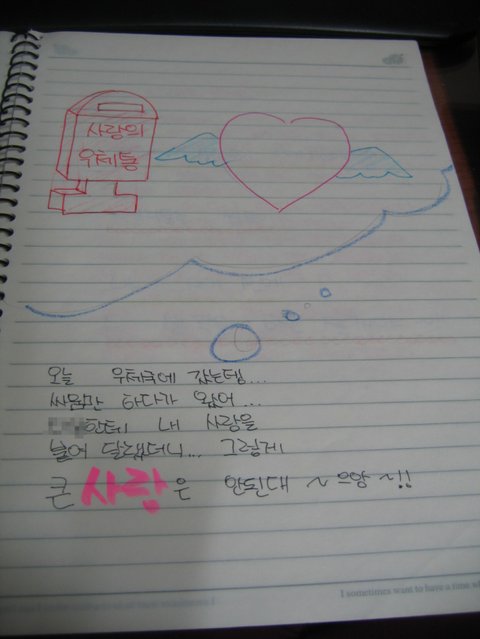 사랑의
우체통
오늘 우체국에 갔는뎅...
싸움만 하다가 왔어...
한테 내 사랑을
붙여 달랬더니... 그렇게
큰 사랑은 안된대 ~ 으앙 ~!!
I sometimes want to have a time w